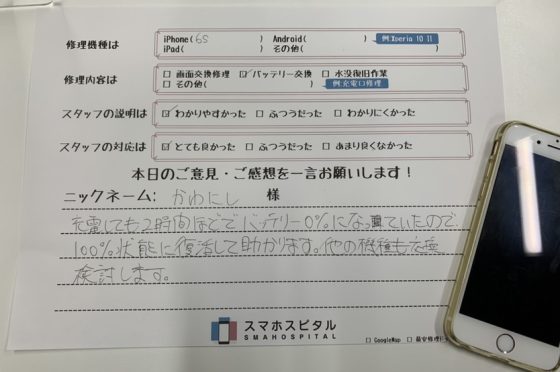 修理機種は iPhone(6s ) Android( ) 例:Xperia 10 II
iPad( ) その他( )
修理内容は □ 画面交換修理 ☑ バッテリー交換 □ 水没復旧作業
□ その他( ) 例:充電口修理
スタッフの説明は ☑ わかりやすかった □ ふつうだった □ わかりにくかった
スタッフの対応は ☑ とても良かった □ ふつうだった □ あまり良くなかった
本日のご意見・ご感想を一言お願いします!
ニックネーム: かわにし 様
充電しても2時間ほどでバッテリー0%になっていたので
100%状態に復活して助かります。他の機種も交換
検討します。
スマホスピタル
SMAHOSPITAL
□ GoogleMap □ 最安修理ド